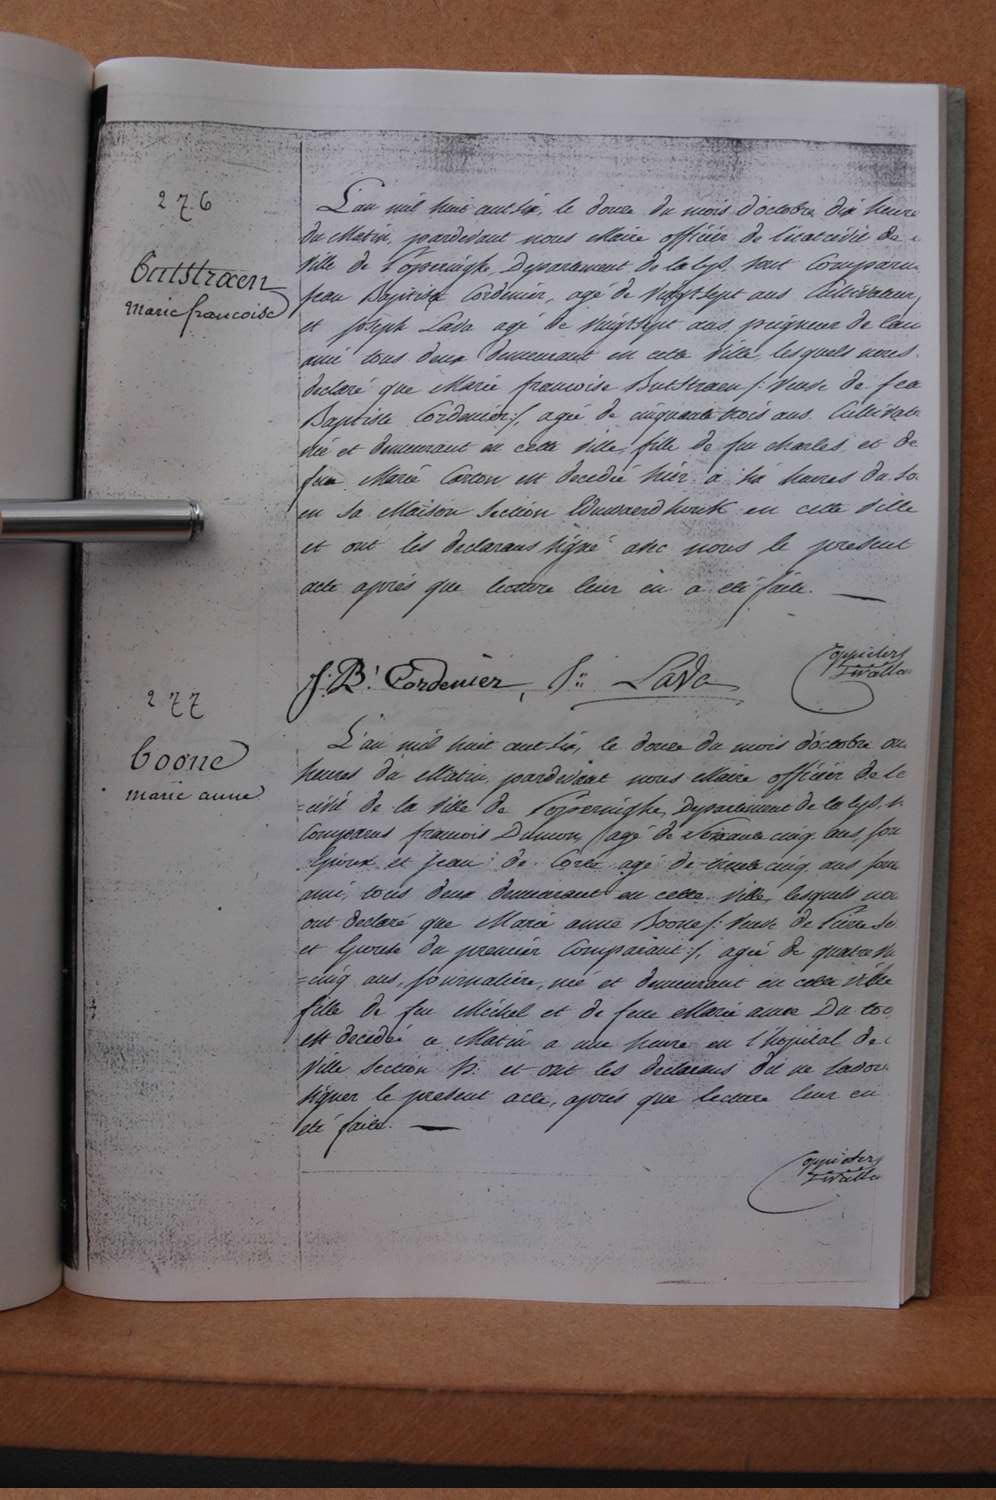 276
Butstraen
marie francoise
L'an mil huit cent six, le douze du mois d'octobre dix heure
du Matin, pardevant nous Maire officier de l'etat civil de
ville de Poperinghe, Departement de la lys. sont Comparu
jean Baptiste Cordenier, agé de vingt sept ans Cultivateur
et joseph Lava agé de vingt sept ans peigneur de lain
ami tous deux demeurant en cette ville, lesquels nous
declaré que Marie francoise Butstraen /: veuve de jea
Baptiste Cordenier :/, agée de cinquante trois ans Cultivat
née et demeurant en cette ville, fille de feu charles et de
feue Marie Carton est decedée hier a six heures du so
en sa Maison section en cette ville
et ont les declarans signé avec nous le present
acte après que lecture leur en a été faite.
J. Bt Cordenier, Jn Lava
277
Boone
marie anne
L'an mil huit cent six, le douze du mois d'octobre on
heures du Matin, pardevant nous Maire officier de le
=civil de la ville de Poperinghe, departement de la lys,
Comparus francois Dumon, agé de soixante cinq ans jou
Epoux et jean de Corte agé de trente cinq ans jou
ami, tous deux demeurant en cette ville, lesquels no
ont declaré que Marie anne Boone /: veuve de Pierre
et Epouse du premier Comparant :/, agée de quatre vi
=cinq ans, journalière, née et demeurant en cette ville
fille de feu Michel et de feue Marie anne Du
est decedée ce Matin a une heure en l'hopital de
ville section B: et ont les declarans dit ne savoir
signer le present acte, après que lecture leur en
été faite.